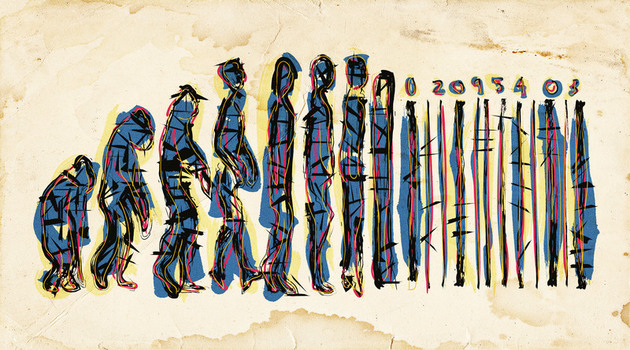 0 20954 03